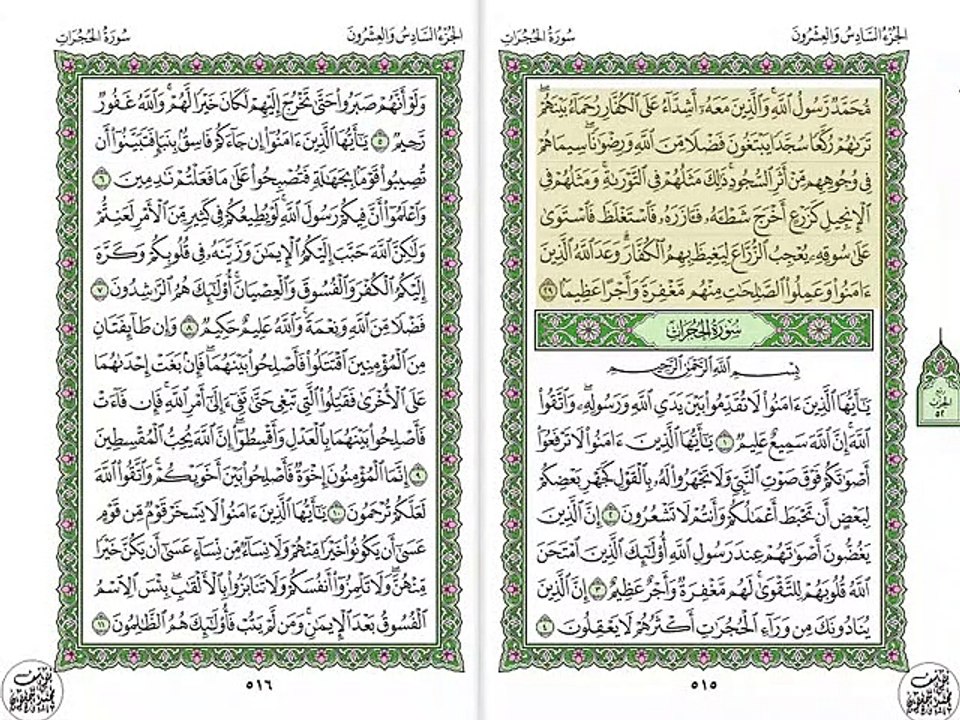 الجزء السادس والعشرون
سورة الحجرات
مُّحَمَّدٌ رَّسُولُ ٱللَّهِ وَٱلَّذِينَ مَعَهُۥٓ أَشِدَّآءُ عَلَى ٱلْكُفَّارِ رُحَمَآءُ بَيْنَهُمْ
تَرَىٰهُمْ رُكَّعًا سُجَّدًا يَبْتَغُونَ فَضْلًا مِّنَ ٱللَّهِ وَرِضْوَٰنًا سِيمَاهُمْ
فِى وُجُوهِهِم مِّنْ أَثَرِ ٱلسُّجُودِ ذَٰلِكَ مَثَلُهُمْ فِى ٱلتَّوْرَىٰةِ وَمَثَلُهُمْ فِى
ٱلْإِنجِيلِ كَزَرْعٍ أَخْرَجَ شَطْـَٔهُۥ فَـَٔازَرَهُۥ فَٱسْتَغْلَظَ فَٱسْتَوَىٰ
عَلَىٰ سُوقِهِۦ يُعْجِبُ ٱلزُّرَّاعَ لِيَغِيظَ بِهِمُ ٱلْكُفَّارَ وَعَدَ ٱللَّهُ ٱلَّذِينَ
ءَامَنُوا۟ وَعَمِلُوا۟ ٱلصَّٰلِحَٰتِ مِنْهُم مَّغْفِرَةً وَأَجْرًا عَظِيمًۢا ٢٩
سُورَةُ الحُجُرَاتِ
بِسْمِ ٱللَّهِ ٱلرَّحْمَٰنِ ٱلرَّحِيمِ
يَٰٓأَيُّهَا ٱلَّذِينَ ءَامَنُوا۟ لَا تُقَدِّمُوا۟ بَيْنَ يَدَىِ ٱللَّهِ وَرَسُولِهِۦ وَٱتَّقُوا۟
ٱللَّهَ إِنَّ ٱللَّهَ سَمِيعٌ عَلِيمٌ ١ يَٰٓأَيُّهَا ٱلَّذِينَ ءَامَنُوا۟ لَا تَرْفَعُوٓا۟
أَصْوَٰتَكُمْ فَوْقَ صَوْتِ ٱلنَّبِىِّ وَلَا تَجْهَرُوا۟ لَهُۥ بِٱلْقَوْلِ كَجَهْرِ بَعْضِكُمْ
لِبَعْضٍ أَن تَحْبَطَ أَعْمَٰلُكُمْ وَأَنتُمْ لَا تَشْعُرُونَ ٢ إِنَّ ٱلَّذِينَ
يَغُضُّونَ أَصْوَٰتَهُمْ عِندَ رَسُولِ ٱللَّهِ أُو۟لَٰٓئِكَ ٱلَّذِينَ ٱمْتَحَنَ
ٱللَّهُ قُلُوبَهُمْ لِلتَّقْوَىٰ لَهُم مَّغْفِرَةٌ وَأَجْرٌ عَظِيمٌ ٣ إِنَّ ٱلَّذِينَ
يُنَادُونَكَ مِن وَرَآءِ ٱلْحُجُرَٰتِ أَكْثَرُهُمْ لَا يَعْقِلُونَ ٤
٥١٥
الحزب
٥٢
الجزء السادس والعشرون
سورة الحجرات
وَلَوْ أَنَّهُمْ صَبَرُوا۟ حَتَّىٰ تَخْرُجَ إِلَيْهِمْ لَكَانَ خَيْرًا لَّهُمْ وَٱللَّهُ غَفُورٌ
رَّحِيمٌ ٥ يَٰٓأَيُّهَا ٱلَّذِينَ ءَامَنُوٓا۟ إِن جَآءَكُمْ فَاسِقٌۢ بِنَبَإٍ فَتَبَيَّنُوٓا۟ أَن
تُصِيبُوا۟ قَوْمًۢا بِجَهَٰلَةٍ فَتُصْبِحُوا۟ عَلَىٰ مَا فَعَلْتُمْ نَٰدِمِينَ ٦
وَٱعْلَمُوٓا۟ أَنَّ فِيكُمْ رَسُولَ ٱللَّهِ لَوْ يُطِيعُكُمْ فِى كَثِيرٍ مِّنَ ٱلْأَمْرِ لَعَنِتُّمْ
وَلَٰكِنَّ ٱللَّهَ حَبَّبَ إِلَيْكُمُ ٱلْإِيمَٰنَ وَزَيَّنَهُۥ فِى قُلُوبِكُمْ وَكَرَّهَ
إِلَيْكُمُ ٱلْكُفْرَ وَٱلْفُسُوقَ وَٱلْعِصْيَانَ أُو۟لَٰٓئِكَ هُمُ ٱلرَّٰشِدُونَ ٧
فَضْلًا مِّنَ ٱللَّهِ وَنِعْمَةً وَٱللَّهُ عَلِيمٌ حَكِيمٌ ٨ وَإِن طَآئِفَتَانِ
مِنَ ٱلْمُؤْمِنِينَ ٱقْتَتَلُوا۟ فَأَصْلِحُوا۟ بَيْنَهُمَا فَإِنۢ بَغَتْ إِحْدَىٰهُمَا
عَلَى ٱلْأُخْرَىٰ فَقَٰتِلُوا۟ ٱلَّتِى تَبْغِى حَتَّىٰ تَفِىٓءَ إِلَىٰٓ أَمْرِ ٱللَّهِ فَإِن فَآءَتْ
فَأَصْلِحُوا۟ بَيْنَهُمَا بِٱلْعَدْلِ وَأَقْسِطُوٓا۟ إِنَّ ٱللَّهَ يُحِبُّ ٱلْمُقْسِطِينَ
٩ إِنَّمَا ٱلْمُؤْمِنُونَ إِخْوَةٌ فَأَصْلِحُوا۟ بَيْنَ أَخَوَيْكُمْ وَٱتَّقُوا۟ ٱللَّهَ
لَعَلَّكُمْ تُرْحَمُونَ ١٠ يَٰٓأَيُّهَا ٱلَّذِينَ ءَامَنُوا۟ لَا يَسْخَرْ قَوْمٌ مِّن قَوْمٍ
عَسَىٰٓ أَن يَكُونُوا۟ خَيْرًا مِّنْهُمْ وَلَا نِسَآءٌ مِّن نِّسَآءٍ عَسَىٰٓ أَن يَكُنَّ خَيْرًا
مِّنْهُنَّ وَلَا تَلْمِزُوٓا۟ أَنفُسَكُمْ وَلَا تَنَابَزُوا۟ بِٱلْأَلْقَٰبِ بِئْسَ ٱلِٱسْمُ
ٱلْفُسُوقُ بَعْدَ ٱلْإِيمَٰنِ وَمَن لَّمْ يَتُبْ فَأُو۟لَٰٓئِكَ هُمُ ٱلظَّٰلِمُونَ ١١
٥١٦